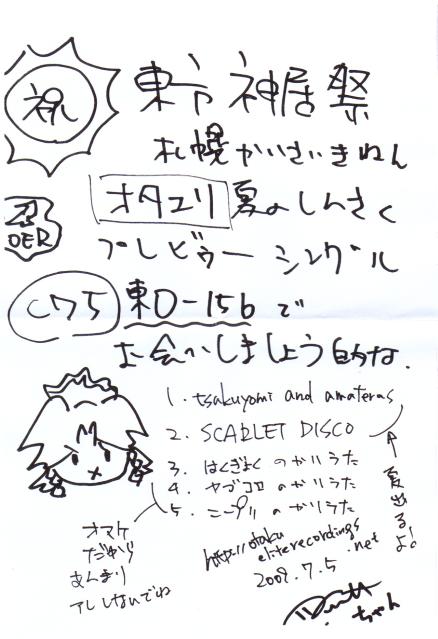 祝
東方神居祭
札幌かいさいきねん
忍
OER
オタエリ 夏のしんさく
プレビゥー シングル
C75 東O-15b で
お会いしましょう的な.
1. tsukuyomi and amateras
2. SCARLET DISCO
3. はくぎょくのかいうた
4. ヤゴコロのかいうた
5. ニープルのかいうた
←夏出るよ!
オマケ
だから
あんまり
アレしないでね
http://otaku
eliterecordings
.net
2009.7.5
ちゃん